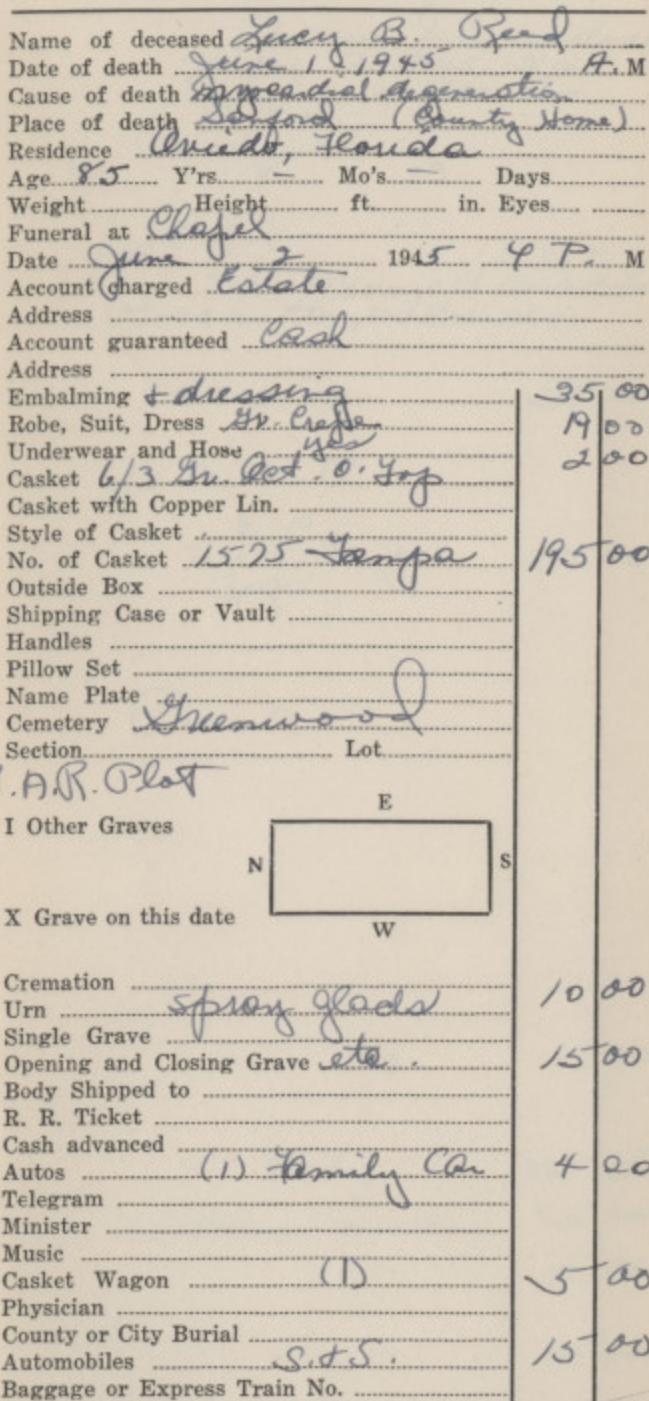 Name of deceased Lucy B. Reed
Date of death June 1, 1945 A. M
Cause of death myocardial degeneration
Place of death Sanford (County Home)
Residence Oviedo, Florida
Age 85 Y'rs — Mo's — Days
Weight Height ft. in. Eyes
Funeral at Chapel
Date June 2 1945 4 P. M
Account charged Estate
Address
Account guaranteed Cash
Address
Embalming & dressing 35 00
Robe, Suit, Dress Gr. Crepe 19 00
Underwear and Hose yes 2 00
Casket 6/3 Gr. Oct. O. Top
Casket with Copper Lin.
Style of Casket
No. of Casket 1575 Tampa 195 00
Outside Box
Shipping Case or Vault
Handles
Pillow Set
Name Plate
Cemetery Greenwood
Section Lot
.A.R. Plot
E
I Other Graves
N S
X Grave on this date
W
Cremation
Urn spray glads 10 00
Single Grave
Opening and Closing Grave etc. 15 00
Body Shipped to
R. R. Ticket
Cash advanced
Autos (1) Family Car 4 00
Telegram
Minister
Music
Casket Wagon (1) 5 00
Physician
County or City Burial
Automobiles S. & S. 15 00
Baggage or Express Train No.